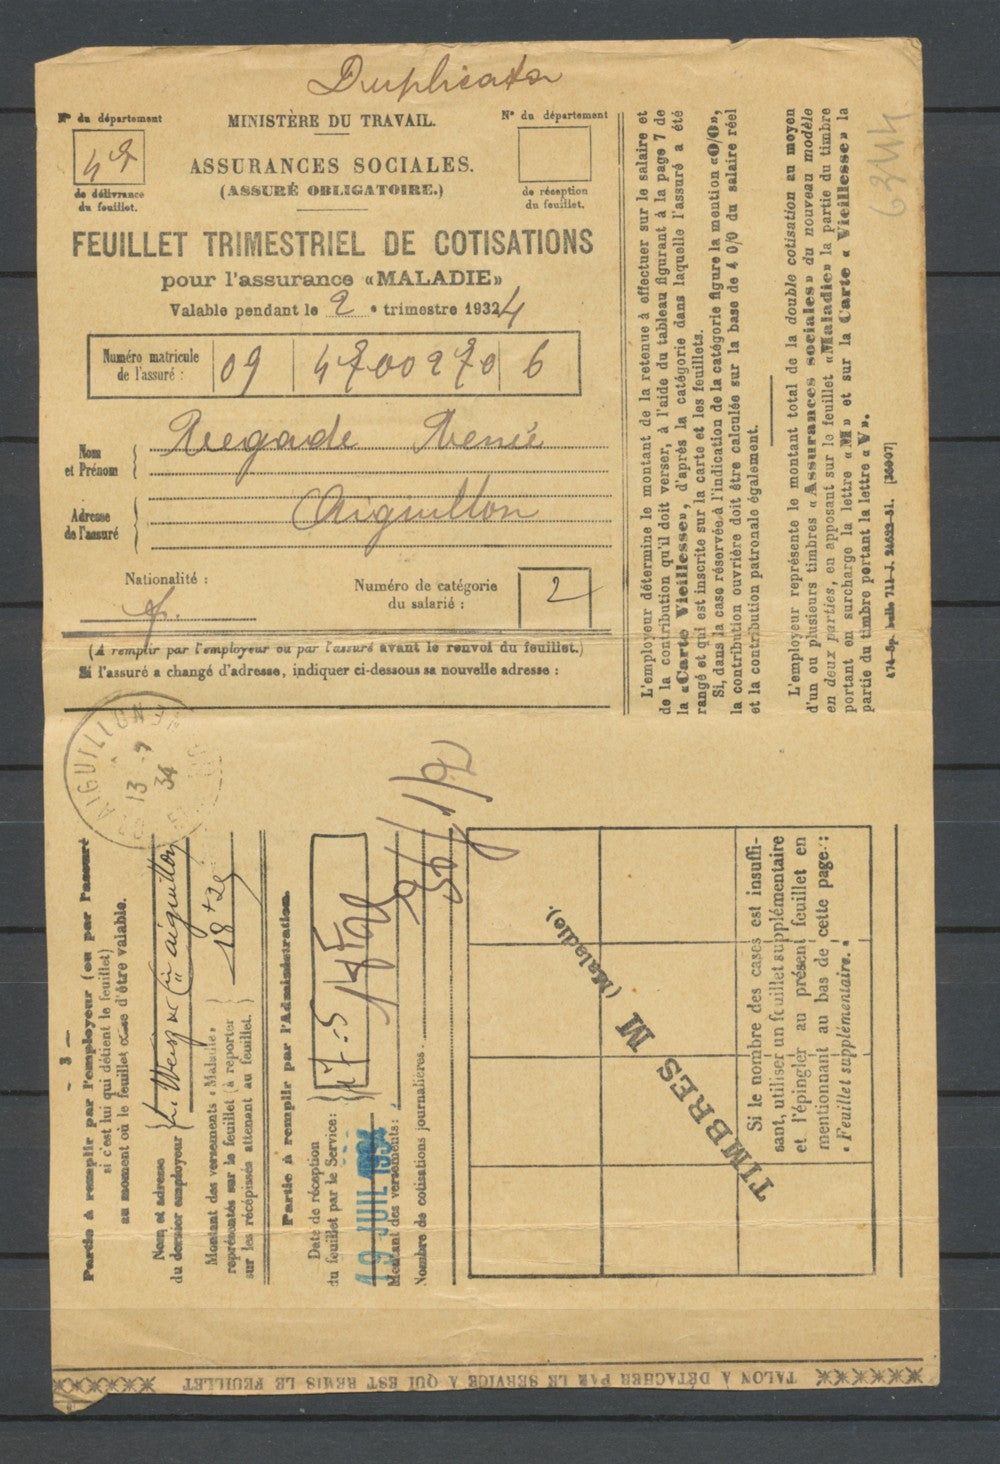 Duplicata
N° du département
47
de délivrance
du feuillet.
MINISTÈRE DU TRAVAIL.
ASSURANCES SOCIALES.
(ASSURÉ OBLIGATOIRE.)
N° du département
de réception
du feuillet.
FEUILLET TRIMESTRIEL DE COTISATIONS
pour l'assurance «MALADIE»
Valable pendant le 2 e trimestre 1932 4
Numéro matricule
de l'assuré :
09 4700270 6
Nom
et Prénom
Regade Renée
Adresse
de l'assuré
Aiguillon
Nationalité :
f.
Numéro de catégorie
du salarié :
2
(A remplir par l'employeur ou par l'assuré avant le renvoi du feuillet.)
Si l'assuré a changé d'adresse, indiquer ci-dessous sa nouvelle adresse :
L'employeur détermine le montant de la retenue à effectuer sur le salaire et
de la contribution qu'il doit verser, à l'aide du tableau figurant à la page 7 de
la «Carte Vieillesse», d'après la catégorie dans laquelle l'assuré a été
rangé et qui est inscrite sur la carte et les feuillets.
Si, dans la case réservée à l'indication de la catégorie figure la mention «0/0»,
la contribution ouvrière doit être calculée sur la base de 4 0/0 du salaire réel
et la contribution patronale également.
L'employeur représente le montant total de la double cotisation au moyen
d'un ou plusieurs timbres «Assurances sociales» du nouveau modèle
en deux parties, en apposant sur le feuillet «Maladie» la partie du timbre
portant en surcharge la lettre «M» et sur la Carte «Vieillesse» la
partie du timbre portant la lettre «V».
6344
AIGUILLON
13 -7
34
— 3 —
Partie à remplir par l'employeur (ou par l'assuré
si c'est lui qui détient le feuillet)
au moment où le feuillet cesse d'être valable.
Nom et adresse
du dernier employeur
aiguillon
Montant des versements «Maladie»
représentés sur le feuillet (à reporter
sur les récépissés attenant au feuillet.)
18
Partie à remplir par l'Administration.
Date de réception
du feuillet par le Service :
19 JUIL 1934
Montant des versements :
Nombre de cotisations journalières.
TIMBRES M (Maladie).
Si le nombre des cases est insuffi-
sant, utiliser un feuillet supplémentaire
et l'épingler au présent feuillet en
mentionnant au bas de cette page :
«Feuillet supplémentaire.»
TALON À DÉTACHER PAR LE SERVICE À QUI EST REMIS LE FEUILLET